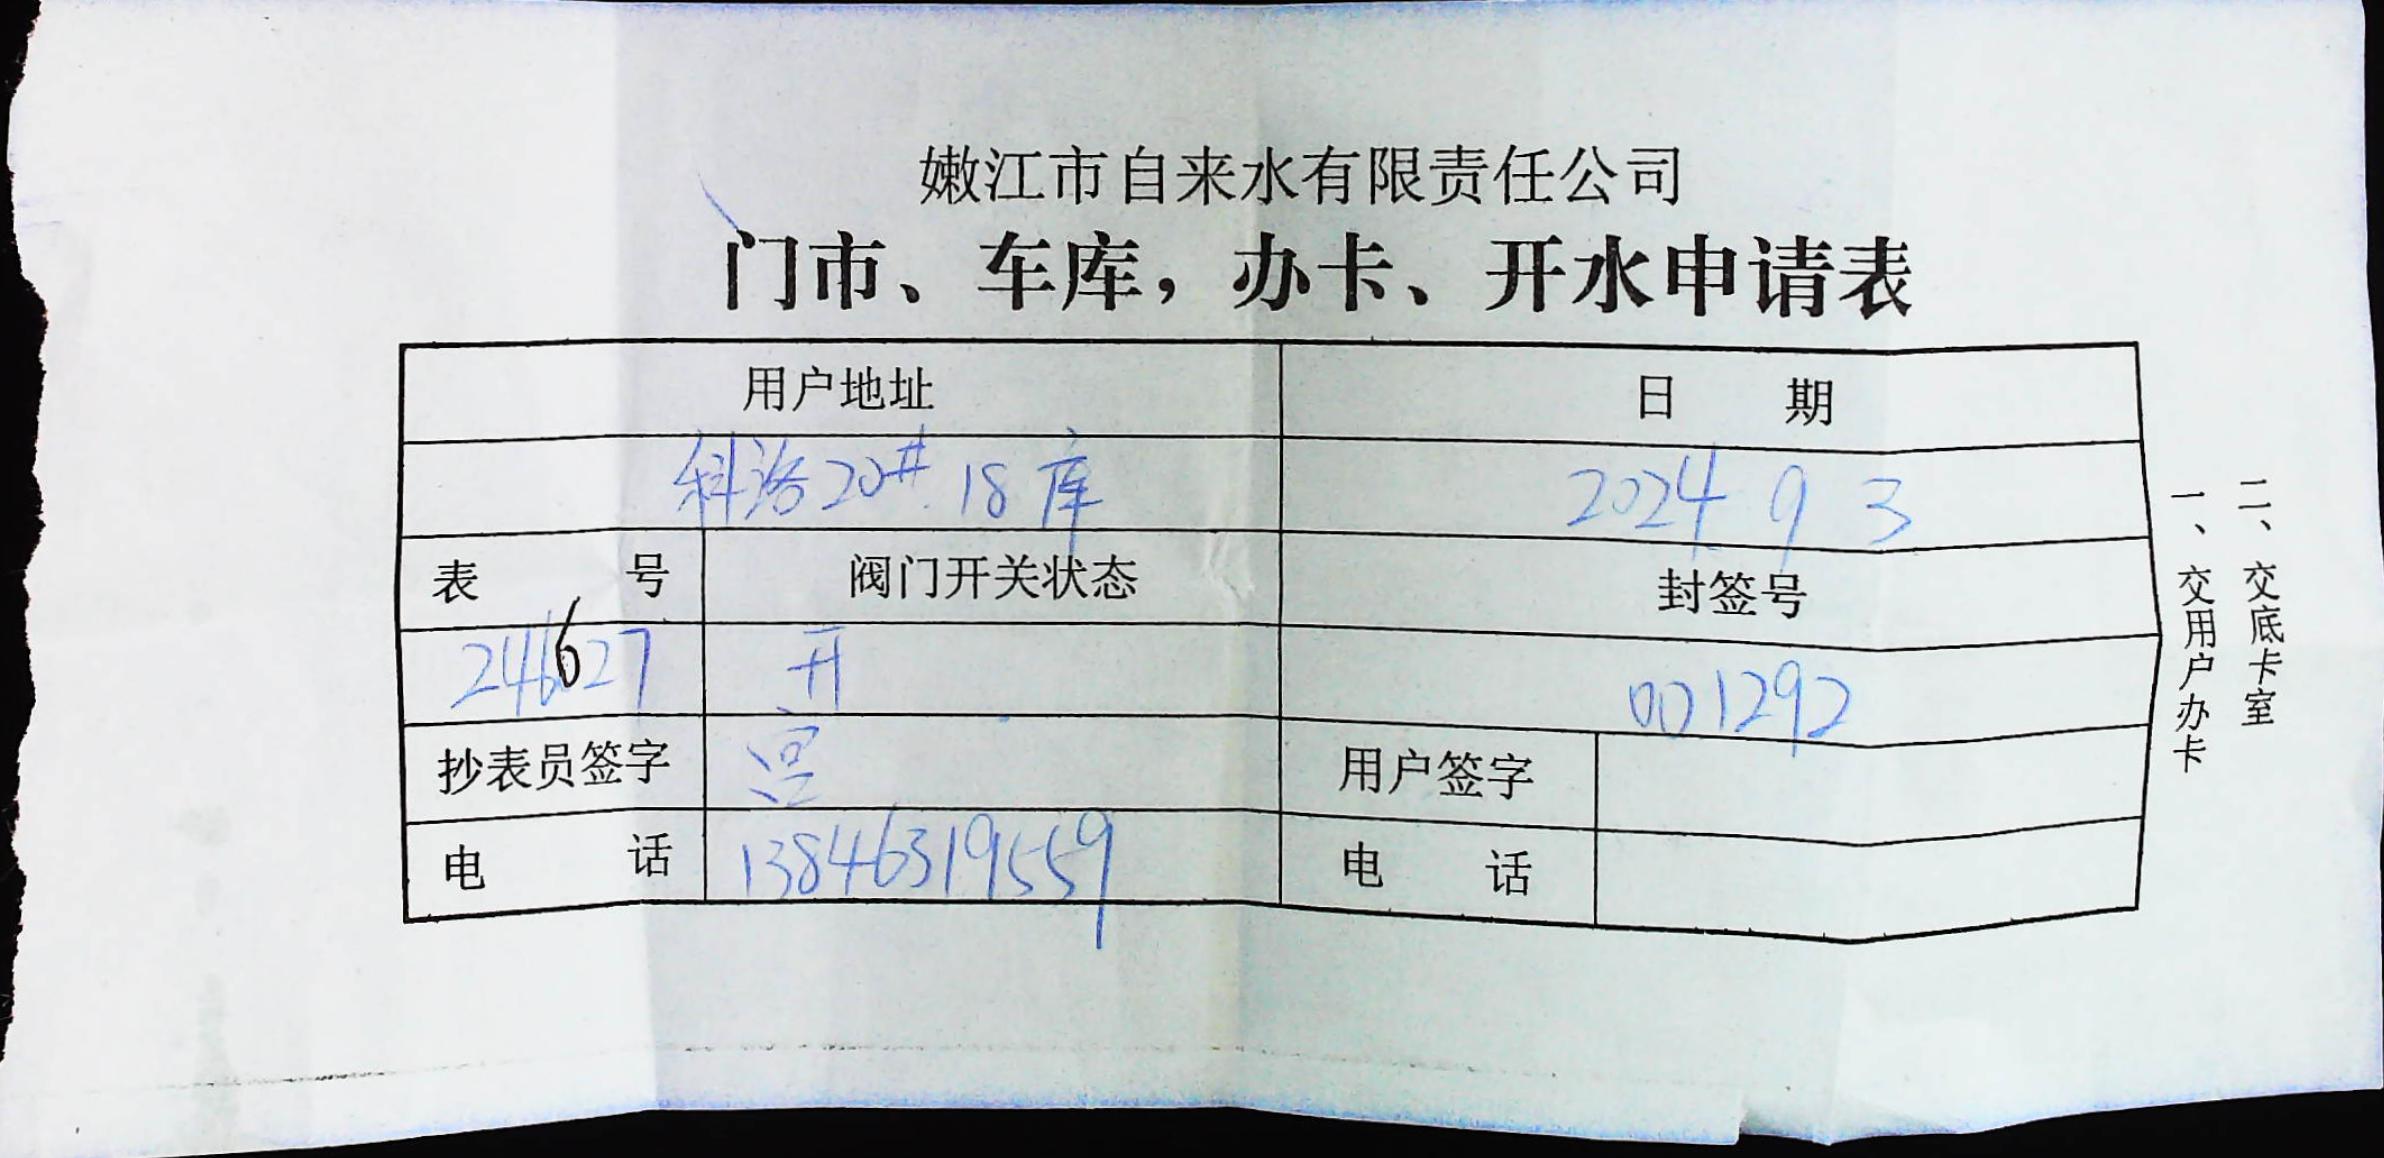 嫩江市自来水有限责任公司
门市、车库，办卡、开水申请表
用户地址 日 期
科洛20# 18库 2024 9 3
表 号 阀门开关状态 封签号
246627 开 001292
抄表员签字 用户签字
电 话 13846319559 电 话
一、交用户办卡
二、交底卡室